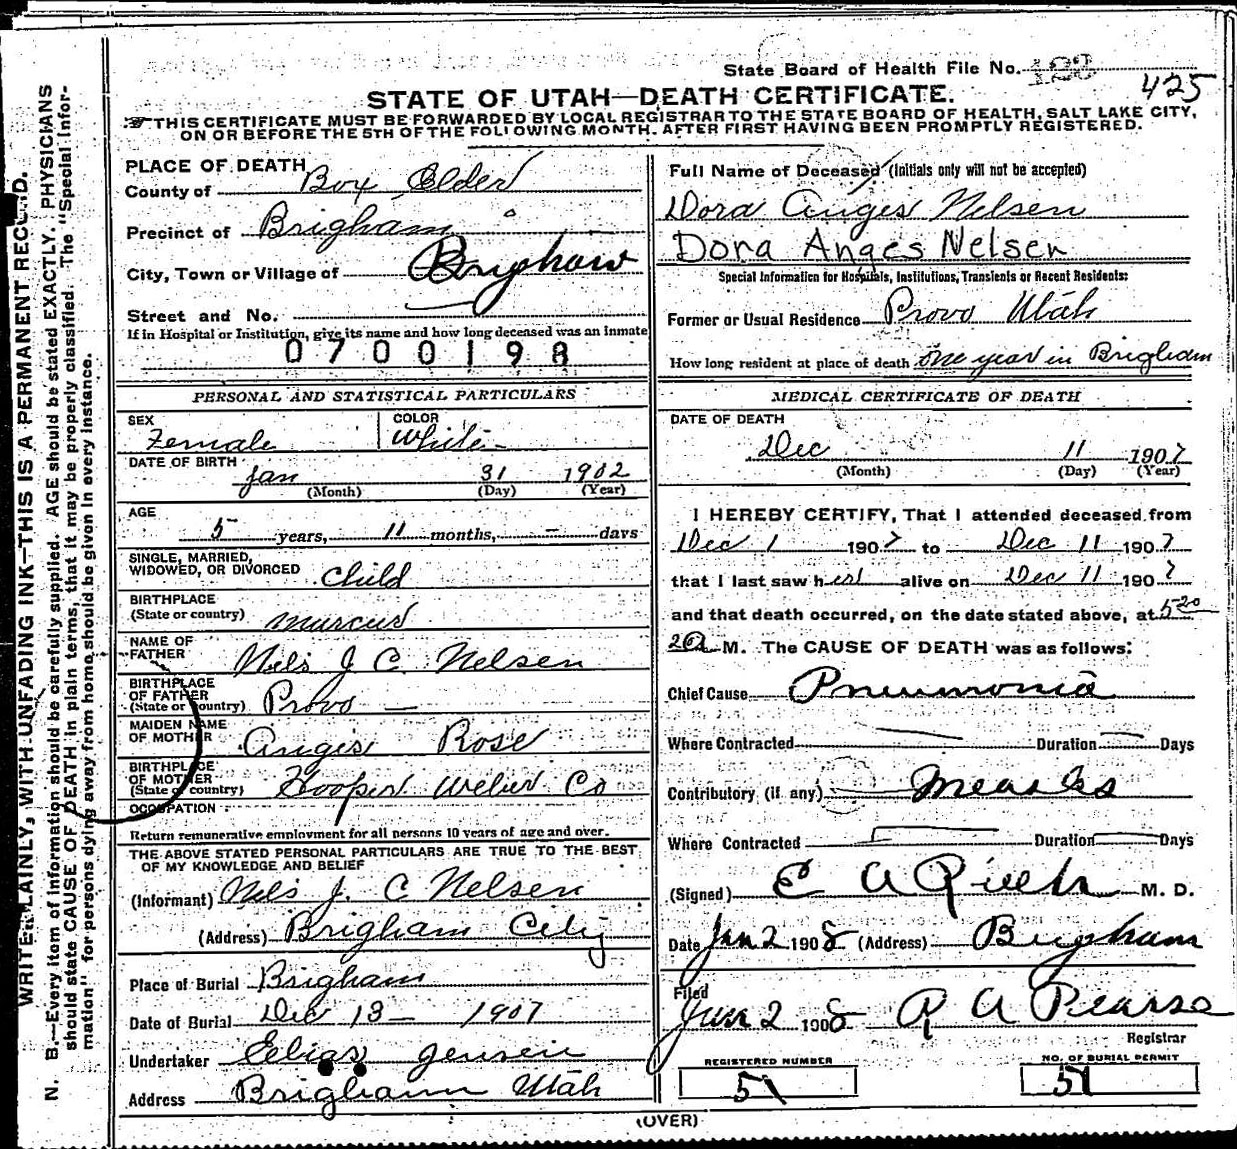 State Board of Health File No. 123
425
STATE OF UTAH—DEATH CERTIFICATE.
THIS CERTIFICATE MUST BE FORWARDED BY LOCAL REGISTRAR TO THE STATE BOARD OF HEALTH, SALT LAKE CITY,
ON OR BEFORE THE 5TH OF THE FOLLOWING MONTH. AFTER FIRST HAVING BEEN PROMPTLY REGISTERED.
WRITE PLAINLY, WITH UNFADING INK—THIS IS A PERMANENT RECORD.
N. B.—Every item of information should be carefully supplied. AGE should be stated EXACTLY. PHYSICIANS
should state CAUSE OF DEATH in plain terms, that it may be properly classified. The "Special Infor-
mation" for persons dying away from home should be given in every instance.
PLACE OF DEATH
County of Box Elder
Precinct of Brigham
City, Town or Village of Brigham
Street and No.
If in Hospital or Institution, give its name and how long deceased was an inmate
0700198
PERSONAL AND STATISTICAL PARTICULARS
SEX Female COLOR White
DATE OF BIRTH Jan 31 1902
(Month) (Day) (Year)
AGE
5 years, 11 months, — days
SINGLE, MARRIED,
WIDOWED, OR DIVORCED Child
BIRTHPLACE
(State or country) Marcus
NAME OF
FATHER Nels J C Nelsen
BIRTHPLACE
OF FATHER
(State or country) Provo —
MAIDEN NAME
OF MOTHER Anges Rose
BIRTHPLACE
OF MOTHER
(State or country) Hooper Weber Co
OCCUPATION
Return remunerative employment for all persons 10 years of age and over.
THE ABOVE STATED PERSONAL PARTICULARS ARE TRUE TO THE BEST
OF MY KNOWLEDGE AND BELIEF
(Informant) Nels J. C Nelsen
(Address) Brigham City
Place of Burial Brigham
Date of Burial Dec 13 — 1907
Undertaker Elias Jensen
Address Brigham Utah
Full Name of Deceased (Initials only will not be accepted)
Dora Anges Nelsen
Dora Anges Nelsen
Special Information for Hospitals, Institutions, Transients or Recent Residents:
Former or Usual Residence Provo Utah
How long resident at place of death one year in Brigham
MEDICAL CERTIFICATE OF DEATH
DATE OF DEATH
Dec 11 1907
(Month) (Day) (Year)
I HEREBY CERTIFY, That I attended deceased from
Dec 1 1907 to Dec 11 1907
that I last saw her alive on Dec 11 1907
and that death occurred, on the date stated above, at 5 20
a M. The CAUSE OF DEATH was as follows:
Chief Cause Pneumonia
Where Contracted — Duration — Days
Contributory (if any) Measles
Where Contracted Duration Days
(Signed) E A M. D.
Date Jan 2 1908 (Address) Brigham
Filed
Jan 2 1908 R A Pearse
Registrar
REGISTERED NUMBER NO. OF BURIAL PERMIT
51 51
(OVER)